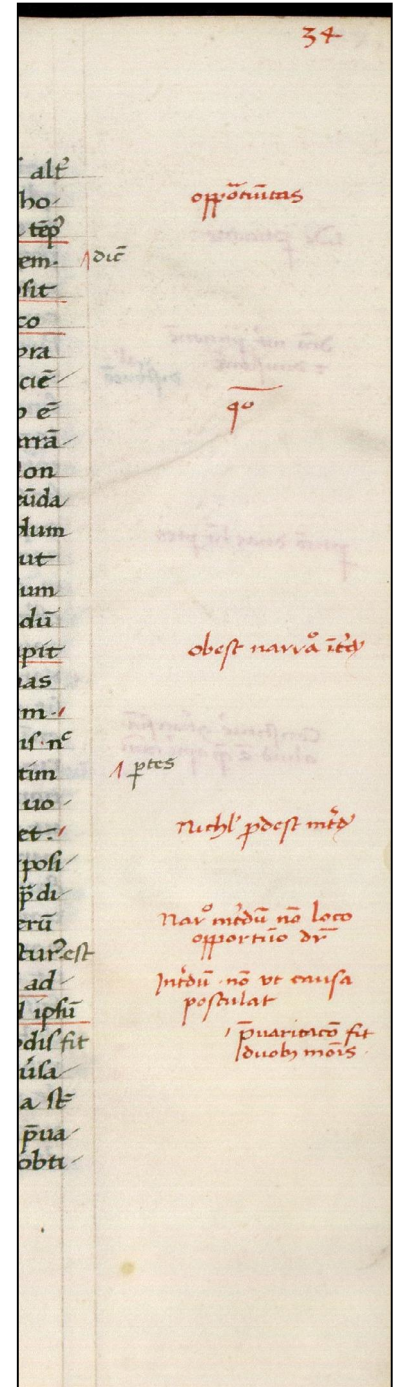 34
alt̄
ho·
tēp̄
em· dic̄
sit
co
pra
ciē
o ē
arrā
lon
eūda
dum
ut
ium
dū
pit
as
m·
is· nᶜ
tim ꝑtes
uo
et·
posi
ꝓdi
erū
tur est
ad
d ipsū
odis fit
a st̄
p̄ua
obti
opp̄ōtūitas
qō
obest narrā̊ it̄dū
Nichl̓ ꝓdest int̄dū
Nar̊ int̄dū nō loco
opportūo dr̄
Int̄dū nō vt causa
postulat
p̄uaricacō fit
duobꝫ modis